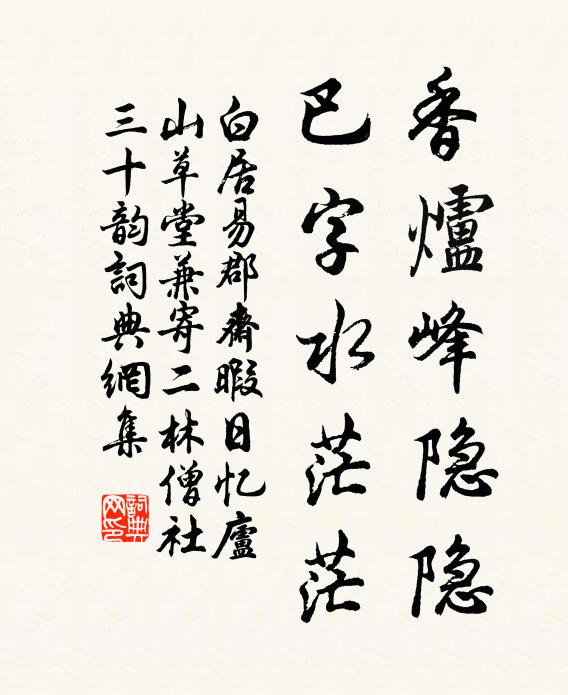 香爐峰隐隐
巴字水茫茫
白居易郡齋暇日忆廬
山草堂兼寄二林僧社
三十韵詞典網集
詞典网印